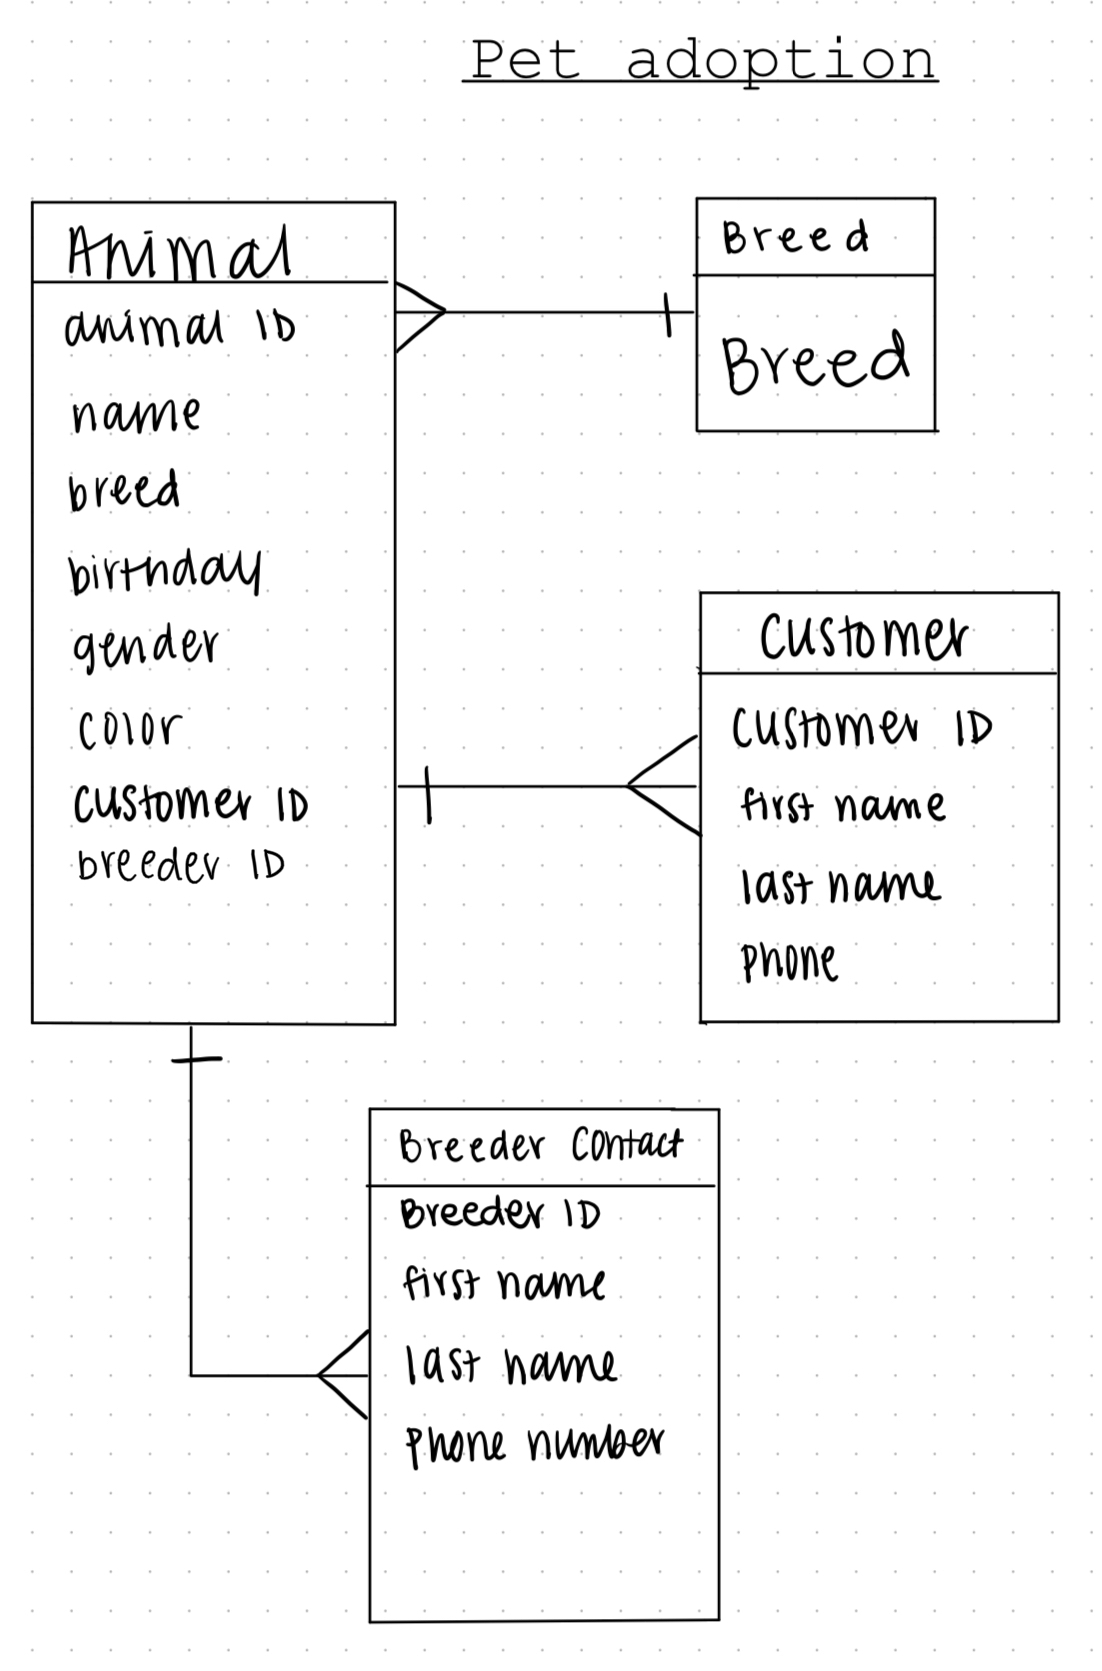 Pet adoption
Animal
animal ID
name
breed
birthday
gender
color
customer ID
breeder ID
Breed
Breed
Customer
Customer ID
first name
last name
phone
Breeder Contact
Breeder ID
first name
last name
phone number